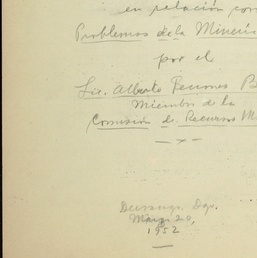 en relación con
Problemas de la Minería
por el
Lic. Alberto Terrones B
Miembro de la
Comisión de Recursos M
Durango, Dgo.
Mayo 20,
1952